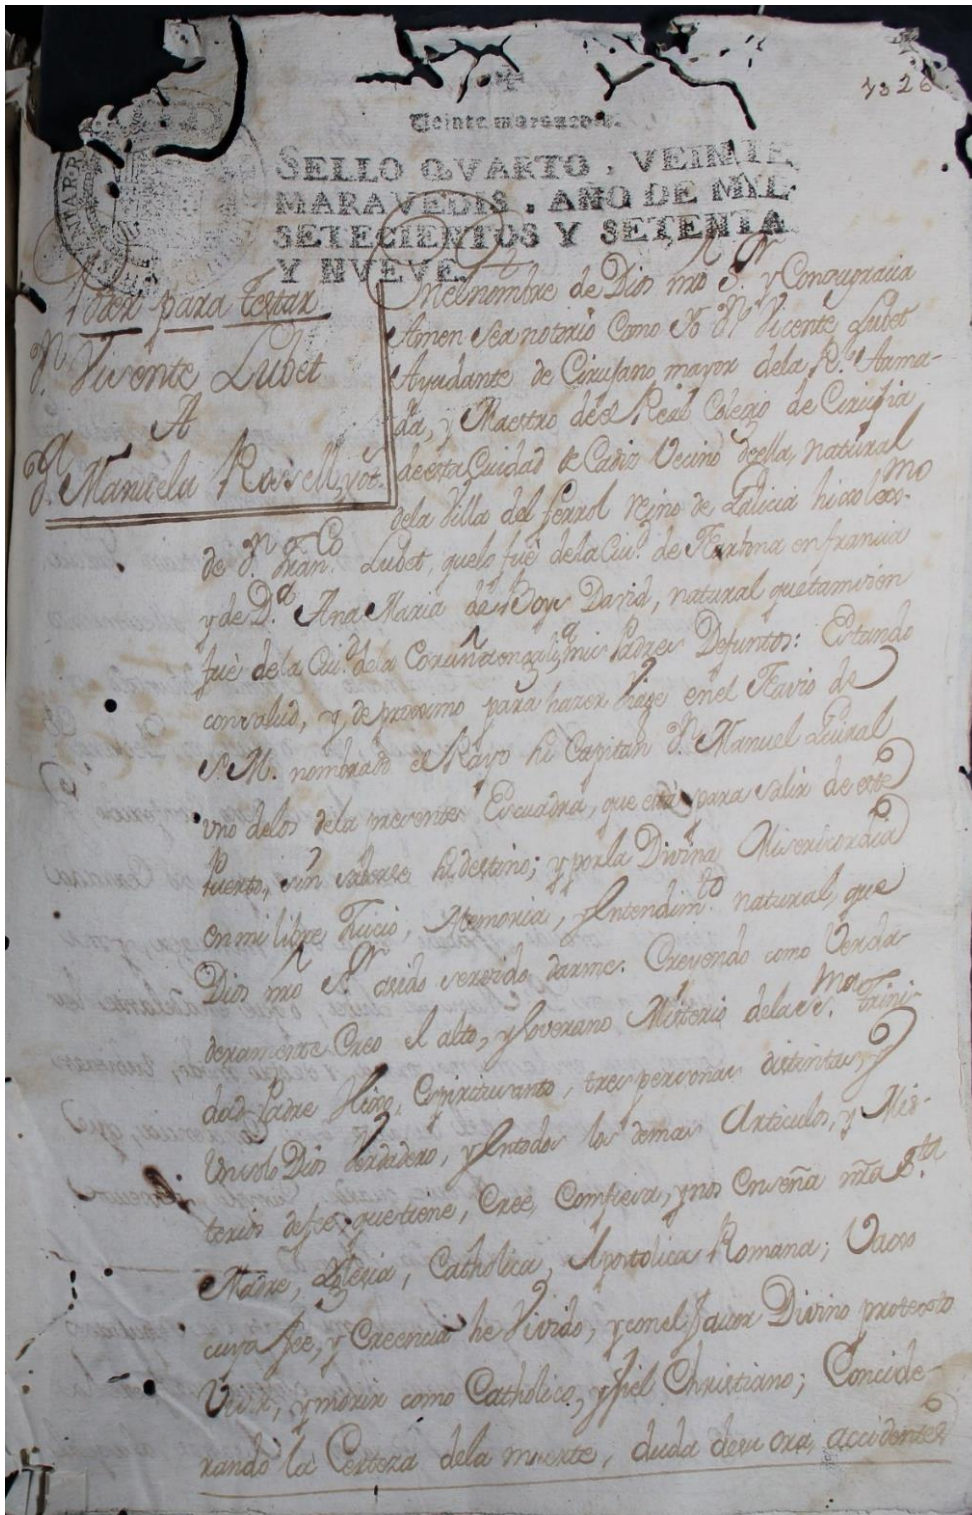 1326
Veinte maravedis.
SELLO QVARTO, VEINTE
MARAVEDIS, AÑO DE MIL
SETECIENTOS Y SETENTA
Y NVEVE.
Poder para testar
Dn. Vicente Lubet
A
Da. Manuela Rossell, y ot.
En el nombre de Dios nro Sr. y Con su gracia
Amen Sea notorio Como Yo Dn Vicente Lubet
Ayudante de Cirujano mayor dela Rl. Arma-
da, y Maestro del Real Colegio de Cirugia
de esta Ciudad de Cadiz Vecino de ella, natural
dela Villa del Ferrol Reino de Galicia hixo lexmo.
de Dn. Franco. Lubet, que lo fuè dela Ciud. de en francia
y de Da. Ana Maria de David, natural que tamvien
fuè de la Ciud. dela Coruña en Gala. mis Padres Defuntos: Estando
con salud, y de proximo para hazer viage en el Navio de
S. M. nombrado el Rayo su Capitan Dn. Manuel
uno delos dela presente Escuadra, que està para salir de este
Puerto, sin saberse su destino; y por la Divina Misericordia
en mi libre Juicio, Memoria, y Entendimto. natural, que
Dios nro Sr. asido servido darme. Creyendo como Verda-
deramente Creo el alto, y Soverano Misterio dela SSma. Trini-
dad Padre Hixo, Espiritusanto, tres personas distintas, y
Un solo Dios Verdadero, y en todos los demas Articulos, y Mis-
terios de fee, que tiene, Cree, Confiesa, y nos Enseña nra Sta.
Madre, Iglesia, Catholica, Apostolica Romana; Vaxo
cuya fee, y Creencia he Vivido, y con el favor Divino protexto
Vivir, y morir como Catholico, y fiel Christiano; Concide-
rando la Certeza dela muerte, duda de su ora, accidentes